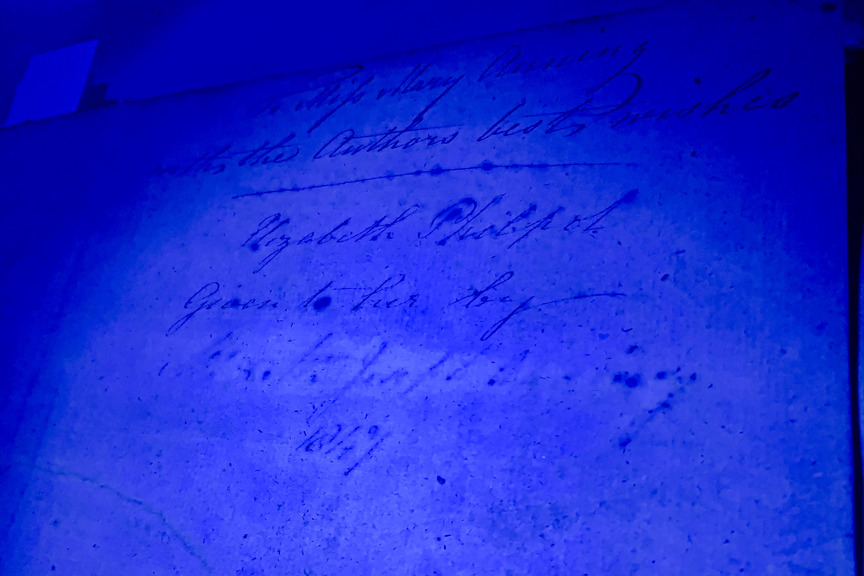 Miss Mary Anning
with the Authors best wishes
Elizabeth Philpot
Given to her by
Joseph Anning
1847